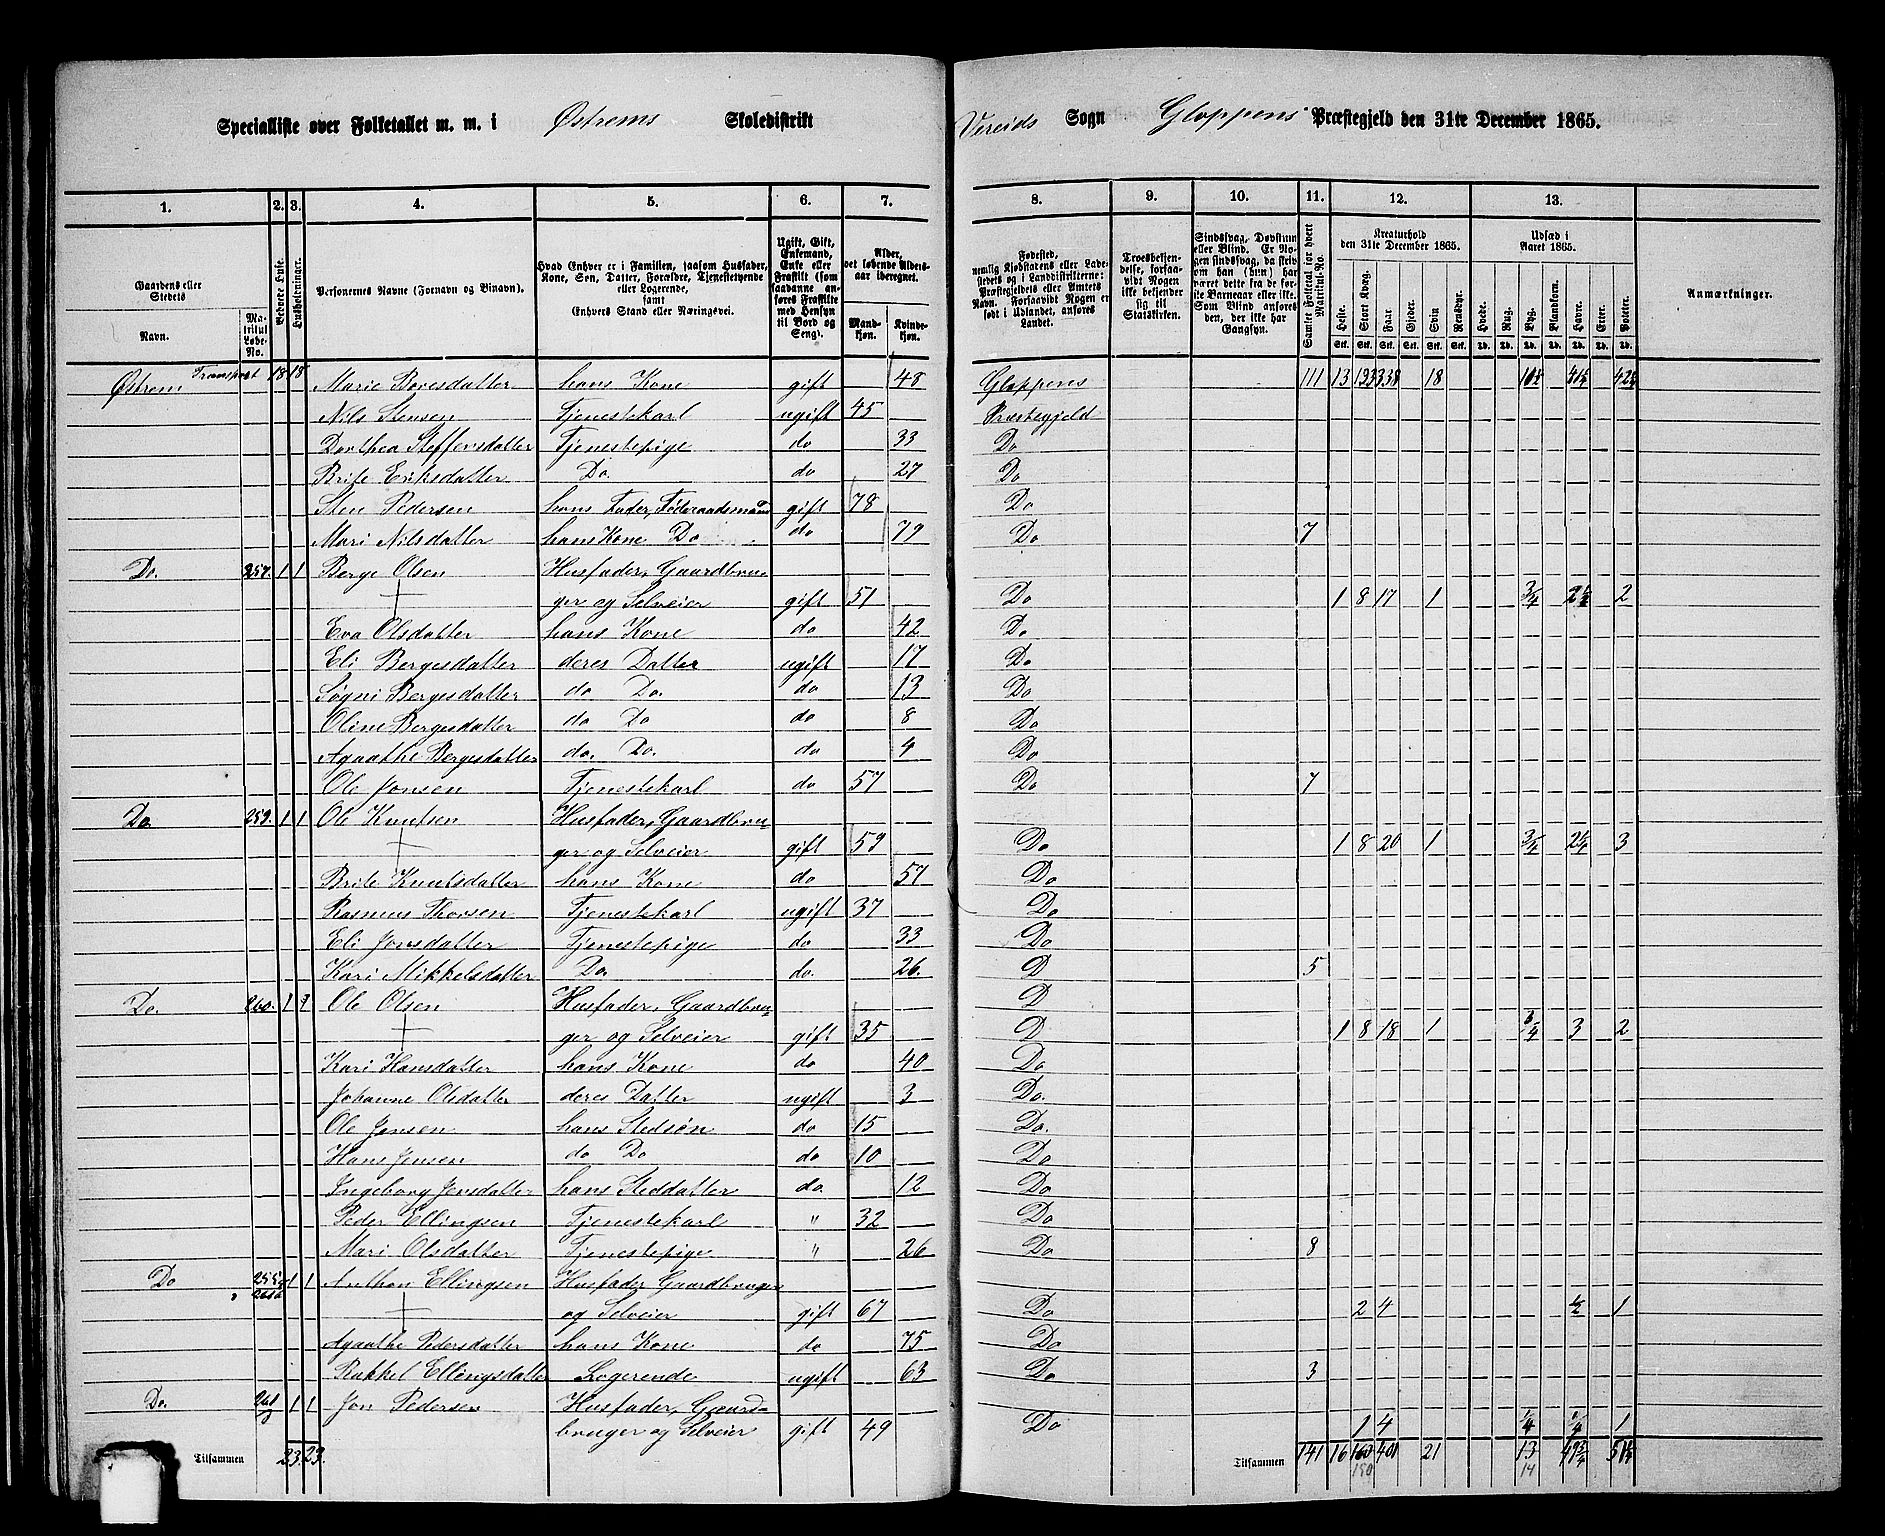 Specialliste over Folketallet m. m. i Østrems Skoledistrikt Vereids Sogn Gloppens Præstegjeld den 31te December 1865.
1. 2. 3. 4. 5. 6. 7. 8. 9. 10. 11. 12. 13.
Gaardens eller Stedets Navn. Matrikul Løbe-No. Beboede Huse. Husholdninger. Personernes Navne (Fornavn og Binavn). Hvad Enhver er i Familien, saasom Husfader, Kone, Søn, Datter, Forældre, Tjenestetyende eller Logerende, samt Enhvers Stand eller Næringsvei. Ugift, Gift, Enkemand, Enke eller Fraskilt (som saadanne anføres Fraskilte med Hensyn til Bord og Seng). Alder, det løbende Aldersaar iberegnet. Mandkøn. Kvindekøn. Fødested, nemlig Kjøbstadens eller Ladestedets og i Landdistrikterne: Præstegjeldets eller Amtets Navn. Forsaavidt Nogen er født i Udlandet, anføres Landet. Troesbekjendelse, forsaavidt Nogen ikke bekjender sig til Statskirken. Sindssvag, Døvstum eller Blind. Er Nogen sindssvag, da skrives om han (hun) har været dette fra de første Barneaar eller ikke. Som Blind anføres den, der ikke har Gangsyn. Samlet Folketal for hvert Matrikul-No. Kreaturhold den 31te December 1865. Heste. Stort Kvæg. Faar. Gjeder. Svin. Rensdyr. Udsæd i Aaret 1865. Hvede. Rug. Byg. Blandkorn. Havre. Erter. Poteter. Anmærkninger.
Østrem Transport 18 18 Marie Boresdatter hans Kone gift 48 Gloppens 111 13 133 338 18
Nils Stensen Tjenestekarl ugift 45 Præstegjeld
Dorthea Steffensdatter Tjenestepige do 33 Do
Brite Eriksdatter Do. do 27 Do
Sten Pedersen hans Fader, Føderaadsmand gift 78 Do
Mari Nilsdatter hans Kone Do do 79 Do 7
Do. 257. 1 1 Berge Olsen Husfader, Gaardbru-
ger og Selveier gift 51 Do 1 8 17 1 3/4 2 1/2 2
Eva Olsdatter hans Kone do 42 Do
Eli Bergesdatter deres Datter ugift 17 Do
Søgni Bergesdatter do Do. do 13 Do
Oline Bergesdatter do Do do 8 Do
Agaathe Bergesdatter do. Do. do 4 Do
Ole Jonsen Tjenestekarl do 57 Do 7
Do. 259. 1 1 Ole Knutsen Husfader, Gaardbru-
ger og Selveier gift 59 Do 1 8 20 1 3/4 3
Brite Knutsdatter hans Kone do 57 Do
Rasmus Thorsen Tjenestekarl ugift 37 Do
Eli Jonsdatter Tjenestepige do 33 Do
Kari Mikkelsdatter Do. do. 26. D 5
Do. 260. 1 2 Ole Olsen Husfader, Gaardbru- D
ger og Selveier gift 35 D 1 8 18 1 3/4 3 2
Kari Hansdatter hans Kone do 40 Do
Johanne Olsdatter deres Datter ugift 3 Do.
Ole Jensen hans Stedsøn do 15 Do.
Hans Jensen do Do do 10 Do
Ingeborg Jensdatter hans Steddatter do. 12 Do
Peder Ellingsen Tjenestekarl " 32 Do
Mari Olsdatter Tjenestepige " 26 Do 8
Do 1 1 Anthon Ellingsen Husfader, Gaardbruger
og Selveier gift 67 Do 2 4 1/2 1
Agaathe Pedersdatter hans Kone do 75 Do
Rakkel Ellingsdatter Logerende ugift 63 Do 3
Do. 1 1 Jon Pedersen Husfader, Gaard-
bruger og Selveier gift 49 Do 1 4 1/4 1/4 1
Tilsammen 23. 23. Tilsammen 141 16 160 401 21 13
190 14